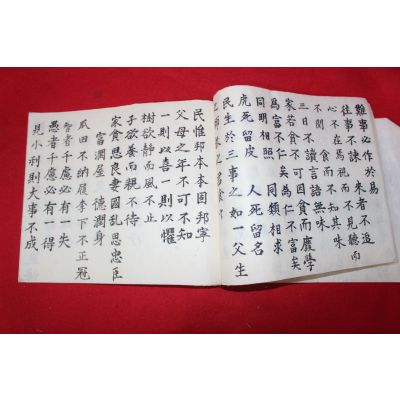 難事必作於易
往事不諫 來者不追
心不在馬視而不見聽而
不聞 食而不知其味
三日不讀言語無味
家若貧不可因貧而廢學
爲富不仁矣爲仁不富矣
同明相照 同類相求
虎死留皮 人死留名
民生於三事之如一父生
民惟邦本本固邦寧
父母之年不可不知
一則以喜一則以懼
樹欲靜而風不止
子欲養而親不待
家貧思良妻國乱思忠臣
富潤屋 德潤身
瓜田不納履李下不正冠
智者千慮必有一失
愚者千慮必有一得
見小利則大事不成